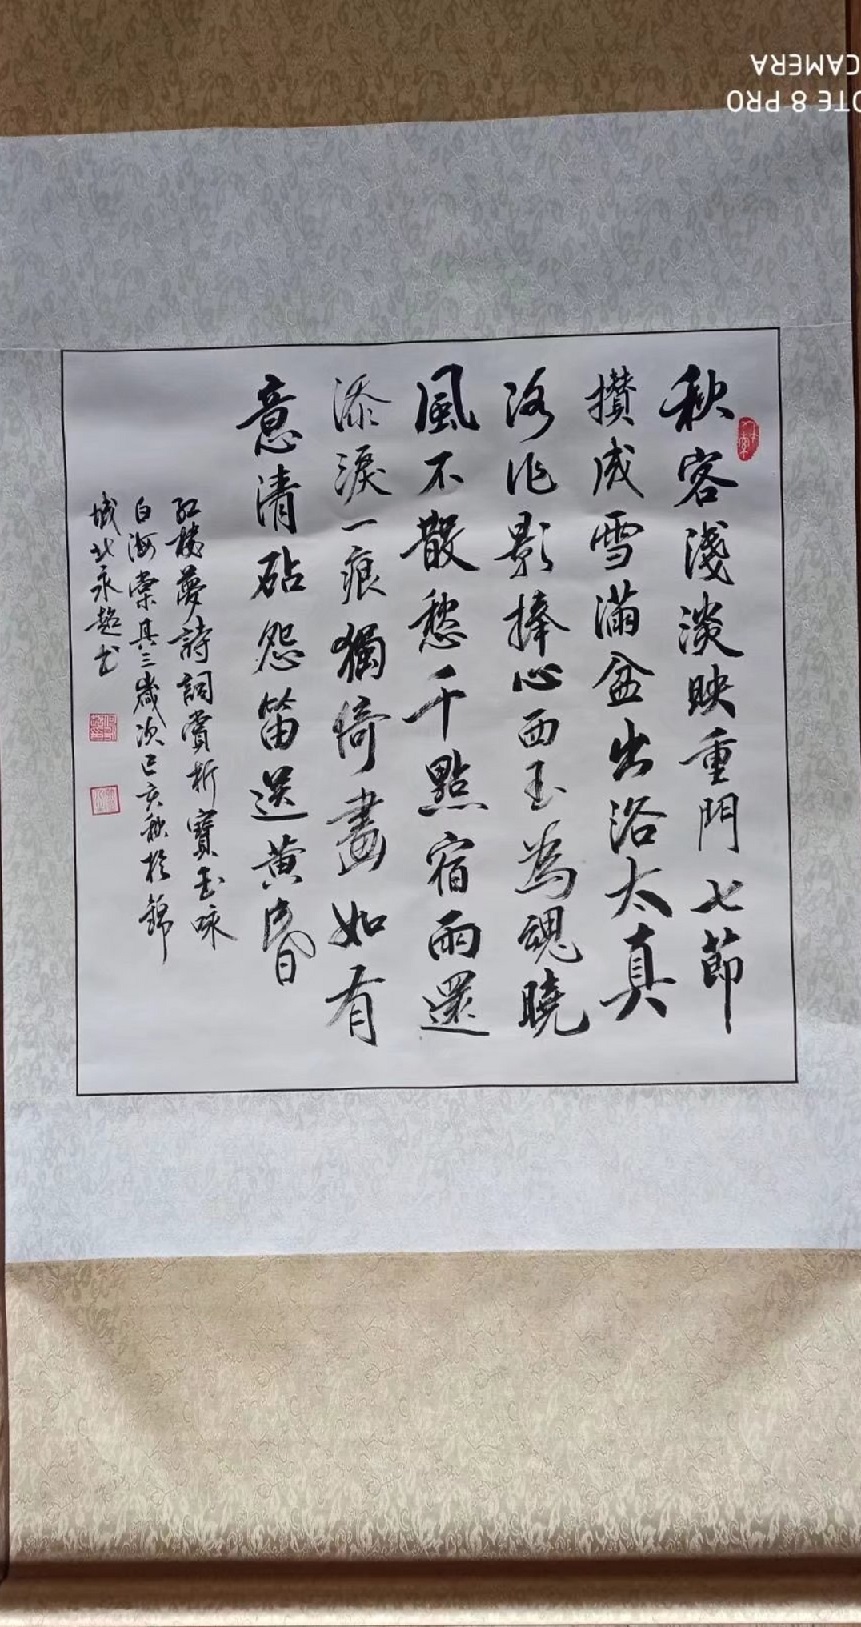 秋容淺淡映重門七節
攢成雪滿盆出浴太真
冰作影捧心西玉為魂曉
風不散愁千點宿雨還
添淚一痕獨倚畫如有
意清砧怨笛送黄昏
紅樓夢詩詞賞析寶玉咏
白海棠其三歲次己亥秋於錦
城北永超书
OTE 8 PRO
CAMERA